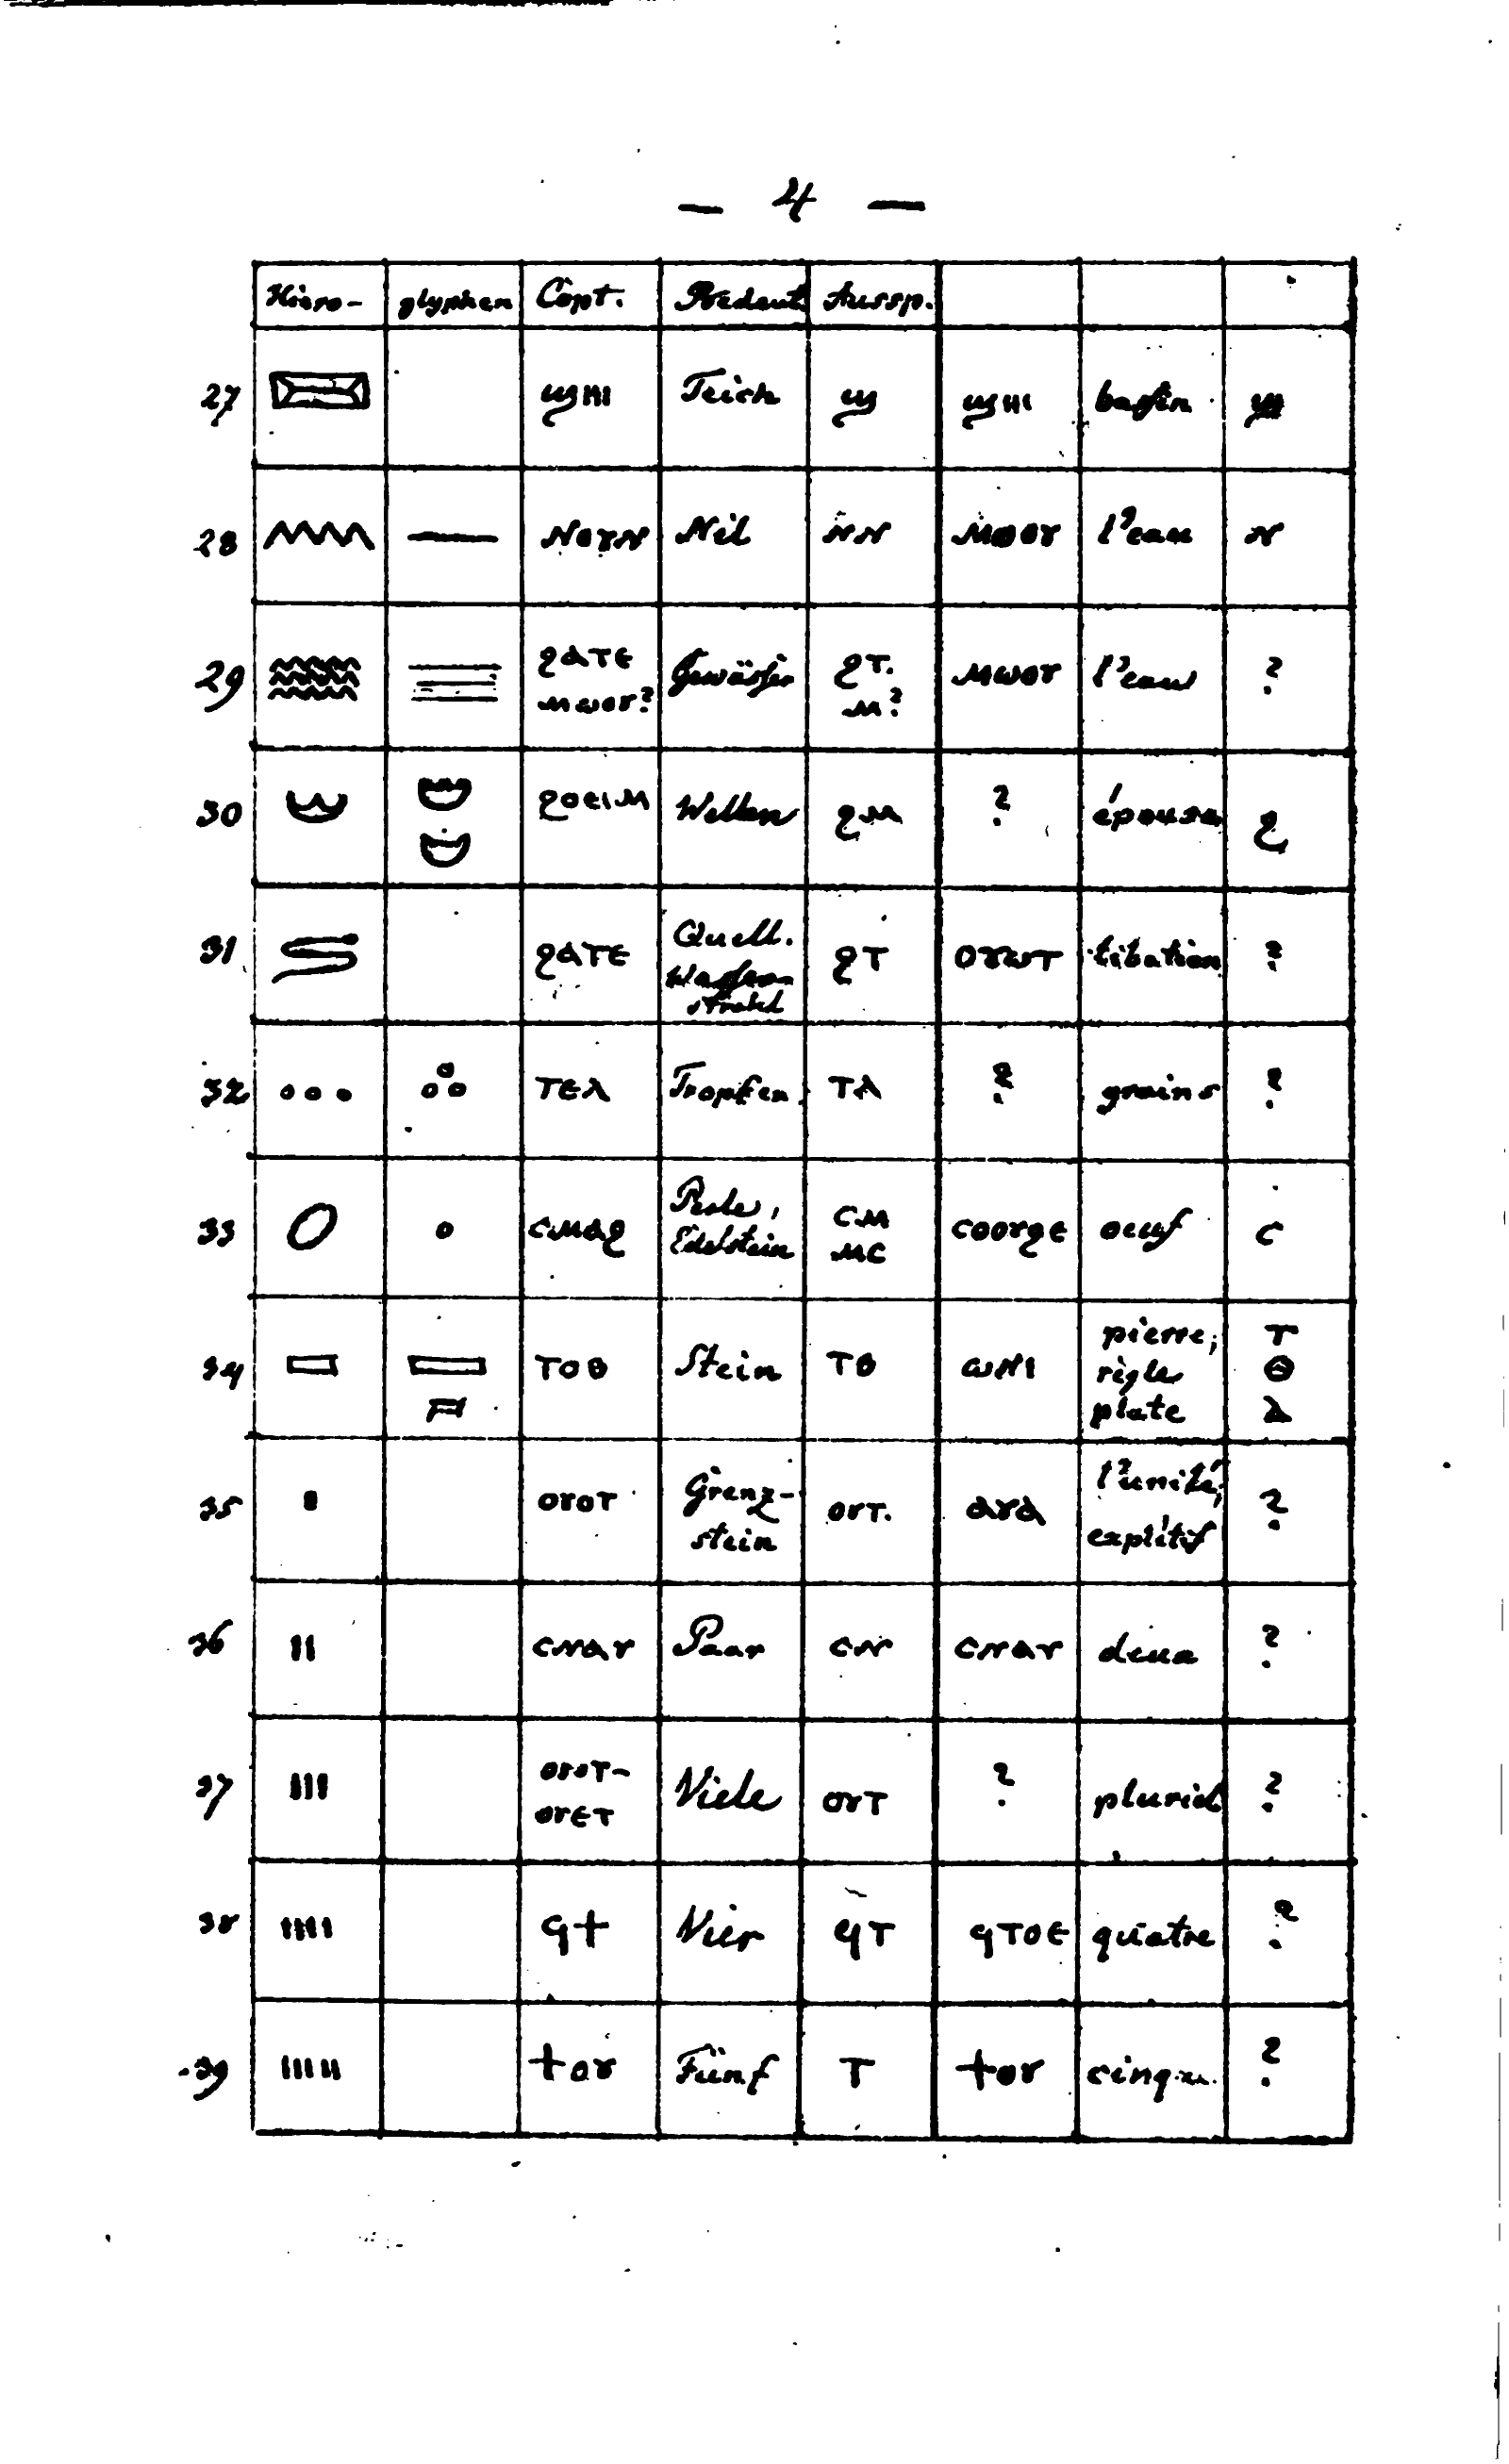 — 4 —
Hiero- glyphen Copt. Bedeut. Aussp.
27 ϣηι Teich ϣ ϣηι bassin ϣ
28 — ⲛⲟⲩⲛ Nil ⲛⲛ ⲙⲟⲟⲩ l'eau ⲛ
29 ϩⲁⲧⲉ ⲙⲱⲟⲩ? Gewässer ϩⲧ. ⲙ? ⲙⲱⲟⲩ l'eau ?
30 ϩⲟⲉⲓⲙ Wellen ϩⲙ ? épouse ϩ
31 ϩⲁⲧⲉ Quell. Wasserstrahl ϩⲧ ⲟⲩⲱⲧ libation ?
32 ⲧⲉⲗ Tropfen ⲧⲗ ? grains ?
33 ⲥⲙⲁϩ Perle, Edelstein ⲥⲙ ⲙⲥ ⲥⲟⲟⲩϩⲉ oeuf ⲥ
34 ⲧⲟⲃ Stein ⲧⲃ ⲱⲛⲓ pierre, règle plate ⲧ ⲑ ⲗ
35 ⲟⲩⲟⲧ Grenz-stein ⲟⲩⲧ. ⲁⲩⲁ l'unité, explétif ?
36 ⲥⲛⲁⲩ Paar ⲥⲛ ⲥⲛⲁⲩ deux ?
37 ⲟⲩⲟⲧ-ⲟⲩⲉⲧ Viele ⲟⲩⲧ ? pluriel ?
38 ϥϯ Vier ϥⲧ ϥⲧⲟⲉ quatre ?
39 ϯⲟⲩ Fünf ⲧ ϯⲟⲩ cinq ?